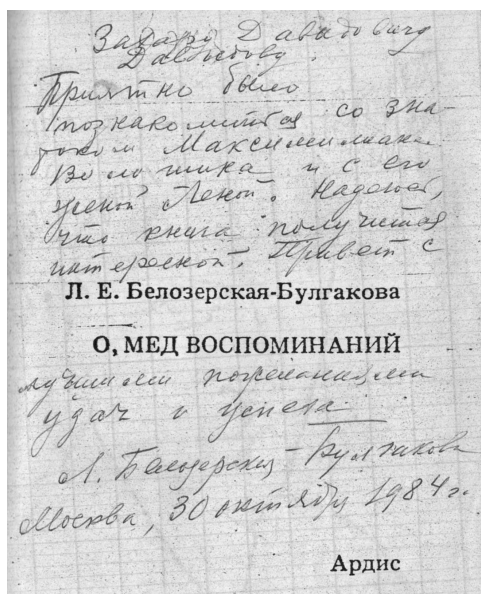 Захару Давидовичу
Давыдову.
Приятно было
познакомиться со зна-
током Максимилиана
Волошина и с его
женой Леной. Надеюсь,
что книга получится
интересной. Привет с
Л. Е. Белозерская-Булгакова
О, МЕД ВОСПОМИНАНИЙ
лучшими пожеланиями
удач и успеха
Л. Белозерская-Булгакова
Москва, 30 октября 1984 г.
Ардис